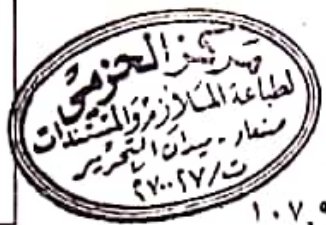 مركز الحزمي
لطباعة الملازم والمستندات
صنعاء - ميدان التحرير
ت/٢٧٠٠٢٧
١٠٧,٩